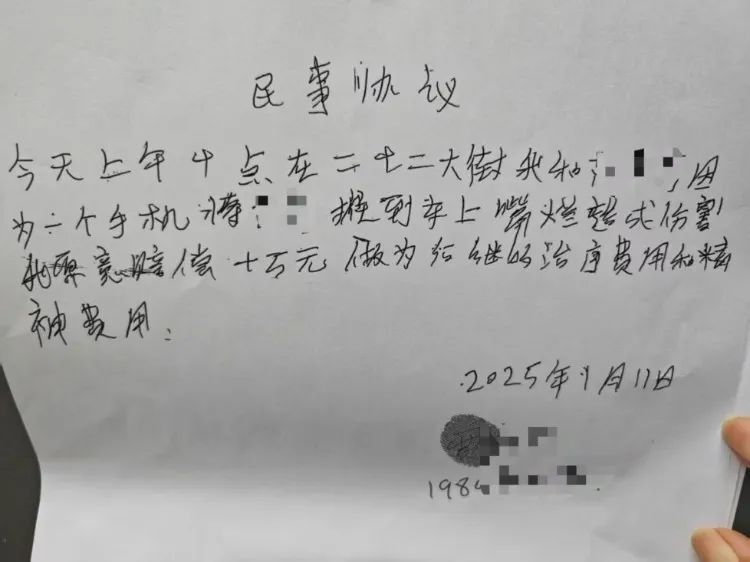 民事协议
今天上午十点在二七二大街我和 因
为一个手机将 摁到车上嘴烂造成伤害
我愿意赔偿十万元做为后继的治疗费用和精
神费用.
2025年9月11日
198